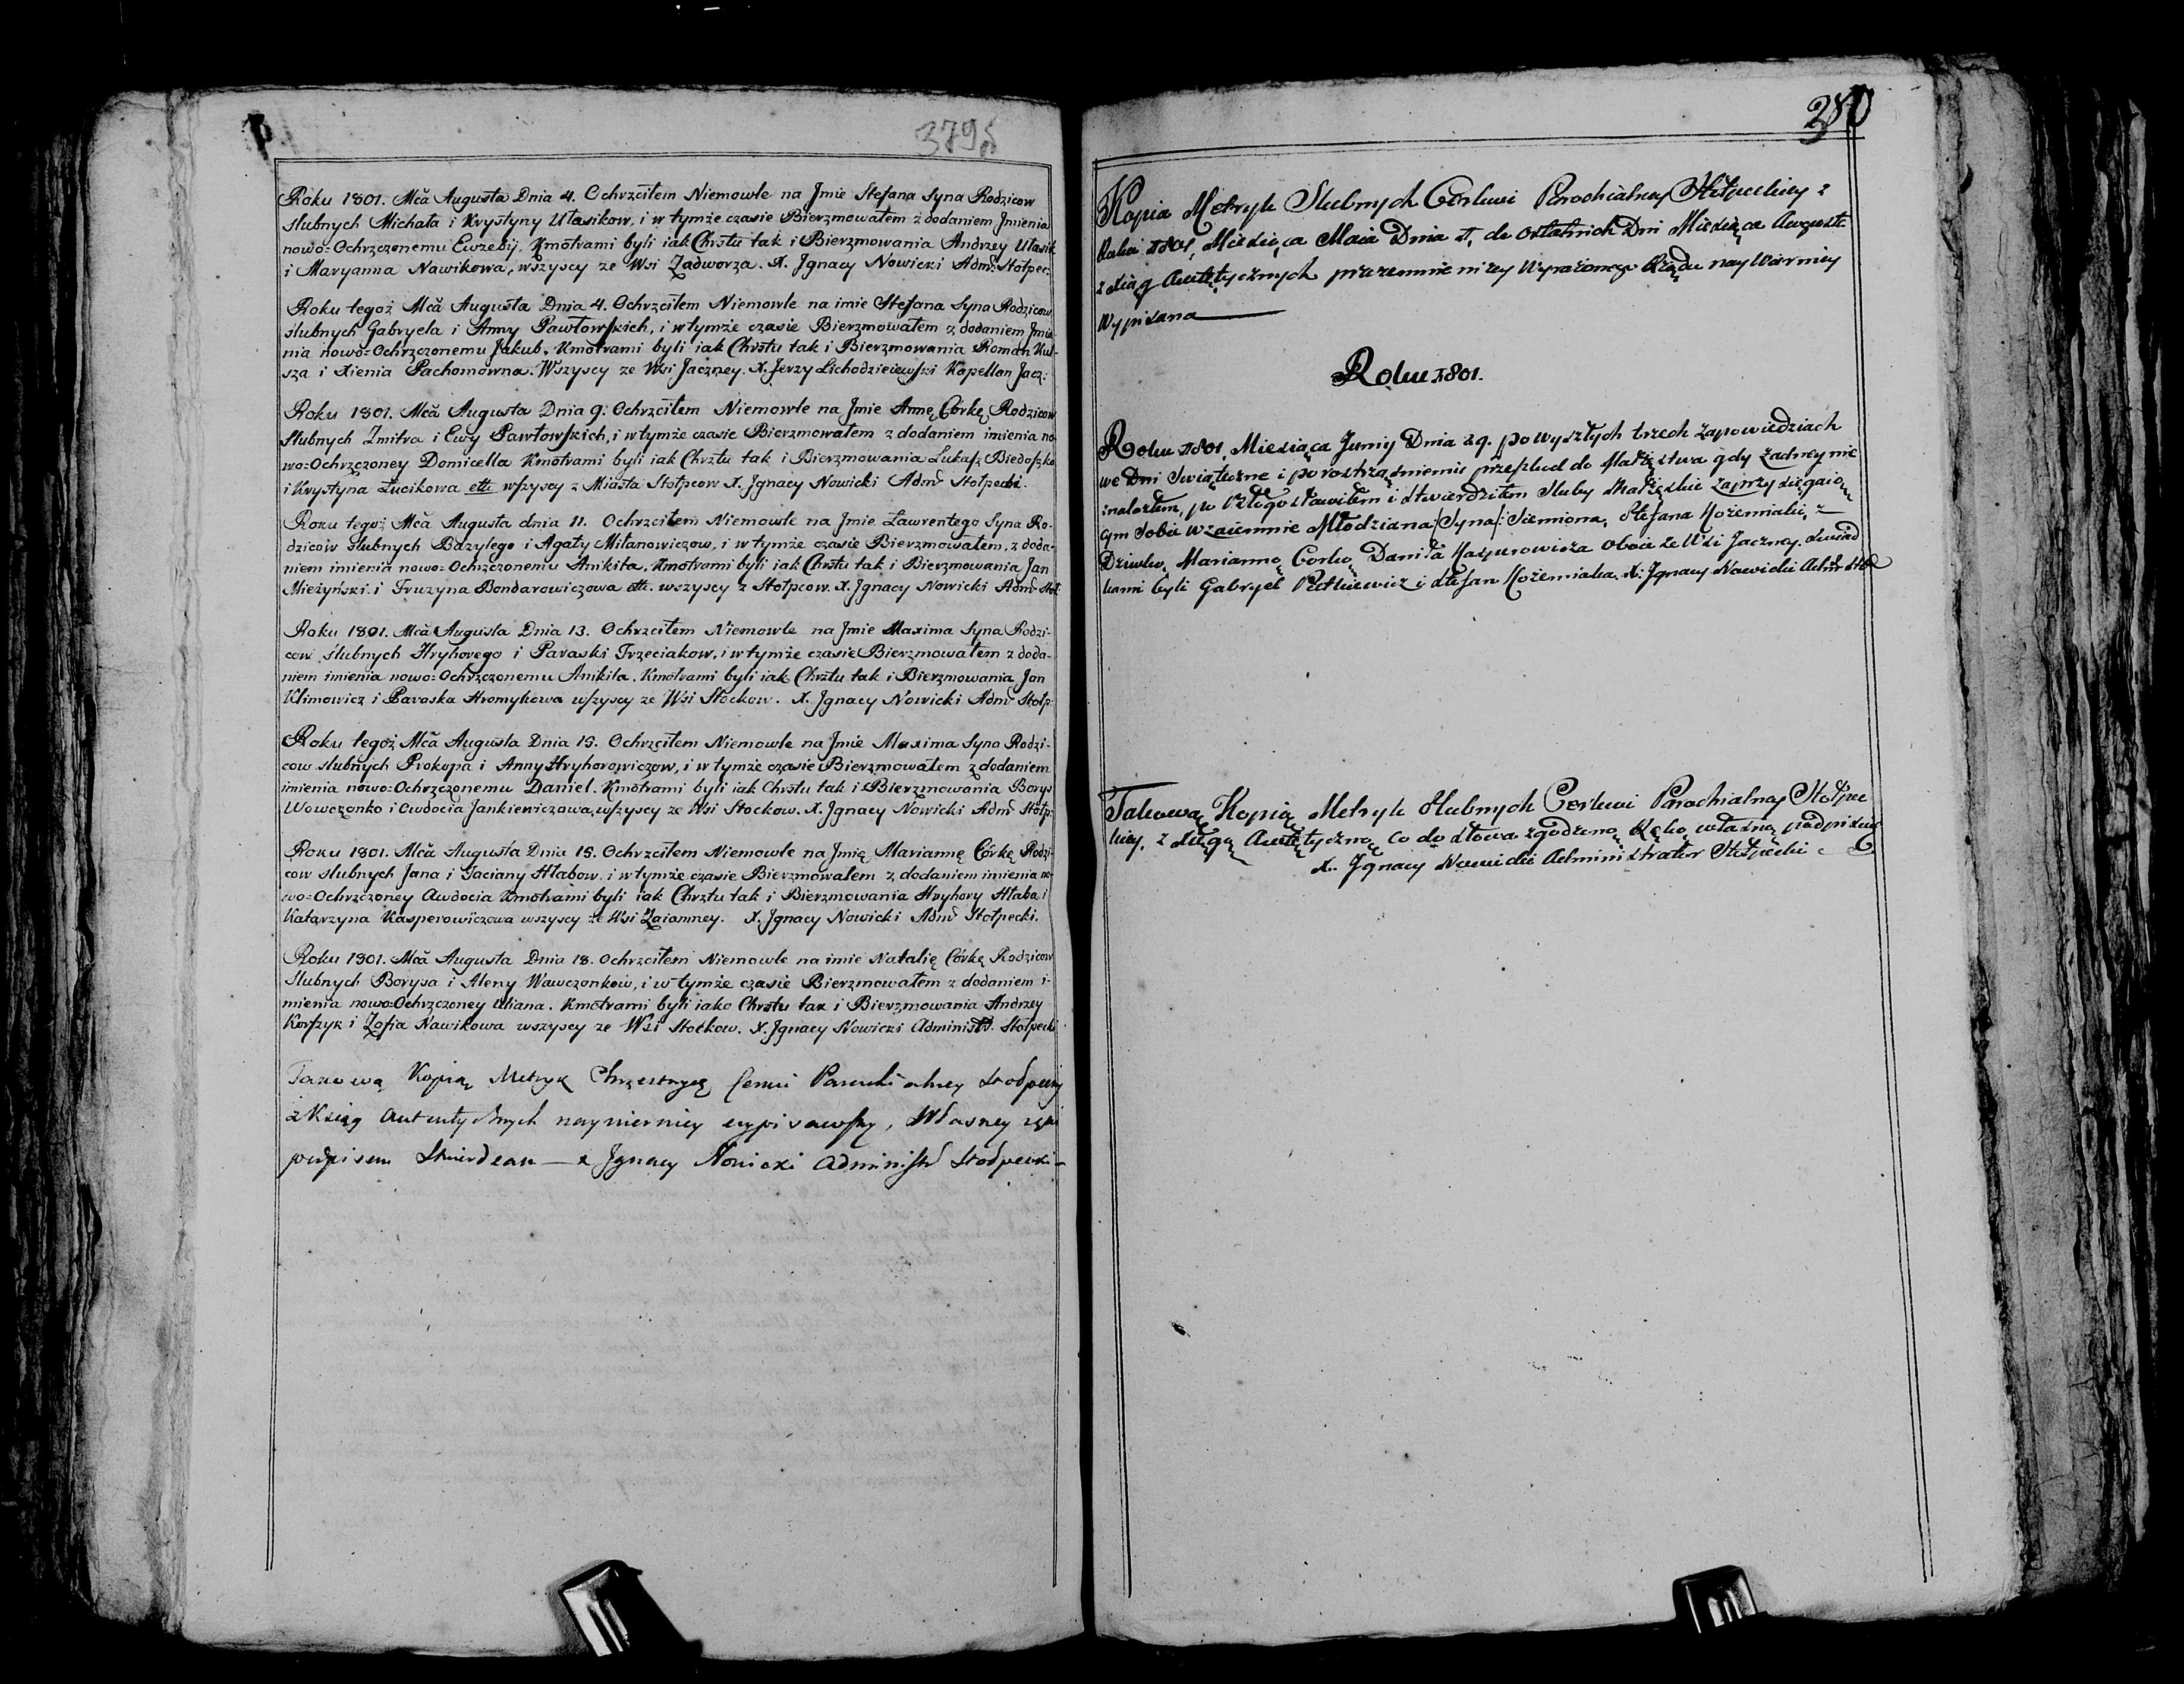 379
Roku 1801. Mcă Augusta Dnia 4. Ochrzciłem Niemowle na Jmie Stefana Syna Rodzicow
slubnych Michała i Krystyny Utasikow, i w tymże czasie Bierzmowałem z dodaniem Jmienia
nowo=Ochrzczonemu Euzebij. Kmotrami byli iak Chrztu tak i Bierzmowania Andrzey Utasik
i Maryanna Nawikowa, wszyscy ze Wsi Zadworza. X. Jgnacy Nowicki Adm: Stołpec:
Roku tegoż Mcă Augusta Dnia 4. Ochrzciłem Niemowle na imie Stefana Syna Rodzicow
slubnych Gabryela i Anny Pawłowskich, i w tymże czasie Bierzmowałem z dodaniem Jmie
nia nowo=Ochrzczonemu Jakub. Kmotrami byli iak Chrztu tak i Bierzmowania Roman Kul-
sza i Xienia Pachomowna. Wszyscy ze Wsi Jaczney. X. Jerzy Lichodzieiewski Kapellan Jacz:
Roku 1801. Mcă Augusta Dnia 9. Ochrzciłem Niemowle na Jmie Annę Córkę Rodzicow
Slubnych Zmitra i Ewy Pawłowskich, i w tymże czasie Bierzmowałem z dodaniem imienia no
wo=Ochrzczoney Domicella Kmotrami byli iak Chrztu tak i Bierzmowania Lukasz Biedoszko
i Krystyna Łucikowa ett: wszyscy z Miasta Stołpcow X. Jgnacy Nowicki Adm Stołpecki.
Roku tegoż Mcă Augusta dnia 11. Ochrzciłem Niemowle na Jmie Lawrentego Syna Ro-
dzicow slubnych Bazylego i Agaty Milanowiczow, i w tymże czasie Bierzmowałem, z doda-
niem imienia nowo=Ochrzczonemu Anikita. Kmotrami byli iak Chrztu tak i Bierzmowania Jan
Mieżyński i Fruzyna Bondarowiczowa ett. wszyscy z Stołpcow. X. Jgnacy Nowicki Adm Stoł:
Roku 1801. Mcă Augusta Dnia 13. Ochrzciłem Niemowle na Jmie Maxima Syna Rodzi-
cow slubnych Hryhorego i Paraski Trzeciakow, i w tymże czasie Bierzmowałem z doda-
niem imienia nowo=Ochrzczonemu Anikita. Kmotrami byli iak Chrztu tak i Bierzmowania Jan
Klimowicz i Paraska Hromykowa wszyscy ze Wsi Stockow. X. Jgnacy Nowicki Adm Stołp:
Roku tegoż Mcă Augusta Dnia 15. Ochrzciłem Niemowle na Jmie Maxima Syna Rodzi-
cow slubnych Prokopa i Anny Hryhorowiczow, i w tymże czasie Bierzmowałem z dodaniem
imienia nowo=Ochrzczonemu Daniel. Kmotrami byli iak Chrztu tak i Bierzmowania Borys
Wowczonko i Owdocia Jankiewiczowa, wszyscy ze Wsi Stockow. X. Jgnacy Nowicki Adm Stołp:
Roku 1801. Mcă Augusta Dnia 15. Ochrzciłem Niemowle na Jmię Mariannę Córkę Rodzi-
cow slubnych Jana i Taciany Hłabow, i w tymże czasie Bierzmowałem z dodaniem imienia no-
wo=Ochrzczoney Awdocia Kmotrami byli iak Chrztu tak i Bierzmowania Hryhory Hłaba i
Katarzyna Kasperowiczowa wszyscy ze Wsi Zaiamney. X. Jgnacy Nowicki Adm Stołpecki.
Roku 1801. Mcă Augusta Dnia 18. Ochrzciłem Niemowle na imie Natalię Córkę Rodzicow
Slubnych Borysa i Aleny Wawczonkow, i w tymże czasie Bierzmowałem z dodaniem i-
mienia nowo=Ochrzczoney Uliana. Kmotrami byli iako Chrztu tak i Bierzmowania Andrzey
Korszyk i Zofia Nawikowa wszyscy ze Wsi Stockow. X. Jgnacy Nowicki Administr Stołpecki
Takową Kopią Metryk Chrzestnych Cerkwi Parochialney Stołpeckiey
z Xsiąg autentycznych naywierniey wypisawszy, Własney ręki
podpisem Stwierdzam — X Jgnacy Nowicki Administr Stołpecki —
380
Kopia Metryk Slubnych Cerkwi Parochialney Stołpeckiey z
Roku 1801, Miesiąca Maia Dnia 1, do ostatnich Dni Miesiąca Augusta
z Xiąg Autentycznych przezemnie niżey Wyrażonego Rządu nay Wierniey
Wypisana
Roku 1801.
Roku 1801, Miesiąca Juny Dnia 29. po wyszłych trzech Zapowiedziach
we Dni Swiąteczne i po roztrząsnieniu przeszkod do Małżęstwa gdy żadney nie
znalazłem, po Błogosławiłem i stwierdziłem Sluby Małżęskie zaprzysięgaią
cym Sobie wzaiemnie Młodziana /Syna/: Siemiona, Stefana Kożemiaki, z
Dziewką Marianną Corką Daniła Kasperowicza oboie ze Wsi Jaczney. Swiad
kami byli Gabryel Pietkiewicz i Stefan Kożemiaka. X: Jgnacy Nowicki Adm Stoł
Takową Kopią Metryk Slubnych Cerkwi Parochialney Stołpec
kiey, z Xięgą Autentyczną co do słowa zgodzoną Ręką własną podpisuię
X. Jgnacy Nowicki Administrator Stołpecki